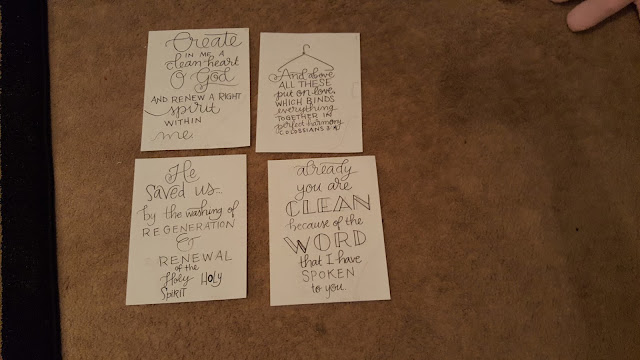 Create
IN ME A
clean heart
O God
AND RENEW A RIGHT
spirit
WITHIN
me.
And above
ALL THESE
put on love,
WHICH BINDS
everything
TOGETHER IN
perfect harmony
COLOSSIANS 3
He
saved us...
by the washing of
REGENERATION
&
RENEWAL
of the
Holy Holy
SPIRIT
already
you are
CLEAN
because of the
WORD
that I have
SPOKEN
to you.